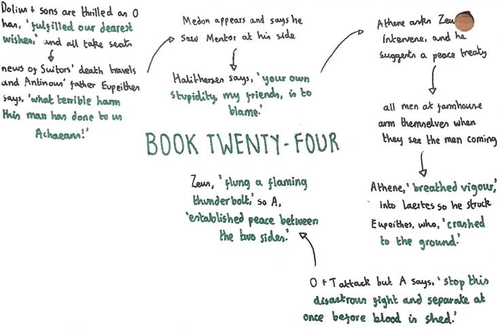 Dolius + sons are thrilled as O
has, 'fulfilled our dearest
wishes,' and all take seats
news of Suitors' death travels
and Antinous' father Eupeithes
says, 'what terrible harm
this man has done to us
Achaeans!'
Medon appears and says he
saw Mentor at his side
Halitherses says, 'your own
stupidity, my friends, is to
blame.'
Athene asks Zeu
intervene, and he
suggests a peace treaty
all men at farmhouse
arm themselves when
they see the men coming
Athene, 'breathed vigour,'
into Laertes so he struck
Eupeithes, who, 'crashed
to the ground.'
O + T attack but A says, 'stop this
disastrous fight and separate at
once before blood is shed.'
Zeus, 'flung a flaming
thunderbolt,' so A,
'established peace between
the two sides.'
BOOK TWENTY-FOUR